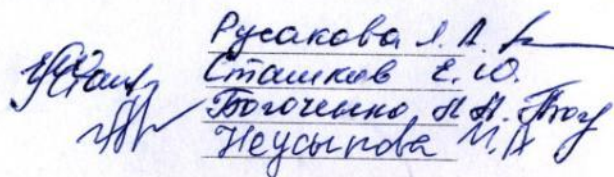 Русакова Л. А.
Сташков Е. Ю.
Богоченко Н. Н.
Неусыпова М. А